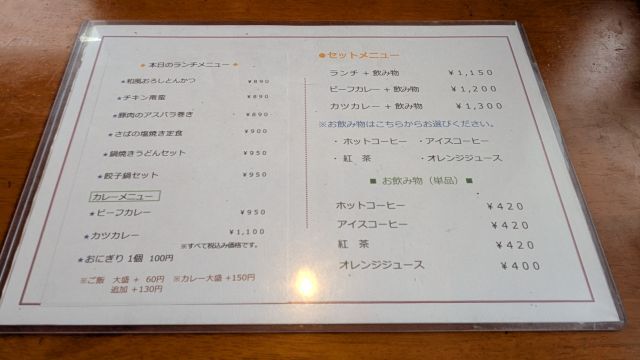 ● 本日のランチメニュー ●
★和風おろしとんかつ ￥890
★チキン南蛮 ￥890
★豚肉のアスパラ巻き ￥890
★さばの塩焼き定食 ￥900
★鍋焼きうどんセット ￥950
★餃子鍋セット ￥950
カレーメニュー
★ビーフカレー ￥950
★カツカレー ￥1,100
※すべて税込み価格です。
★おにぎり 1個 100円
※ご飯 大盛 + 60円 ※カレー大盛 +150円
追加 +130円
●セットメニュー
ランチ + 飲み物 ￥1,150
ビーフカレー + 飲み物 ￥1,200
カツカレー + 飲み物 ￥1,300
※お飲み物はこちらからお選びください。
・ホットコーヒー ・アイスコーヒー
・紅 茶 ・オレンジジュース
■ お飲み物（単品） ■
ホットコーヒー ￥420
アイスコーヒー ￥420
紅 茶 ￥420
オレンジジュース ￥400